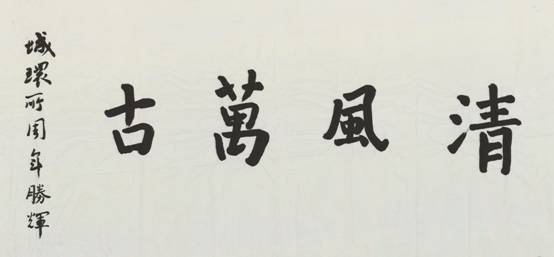 清風萬古
城環所周年勝輝